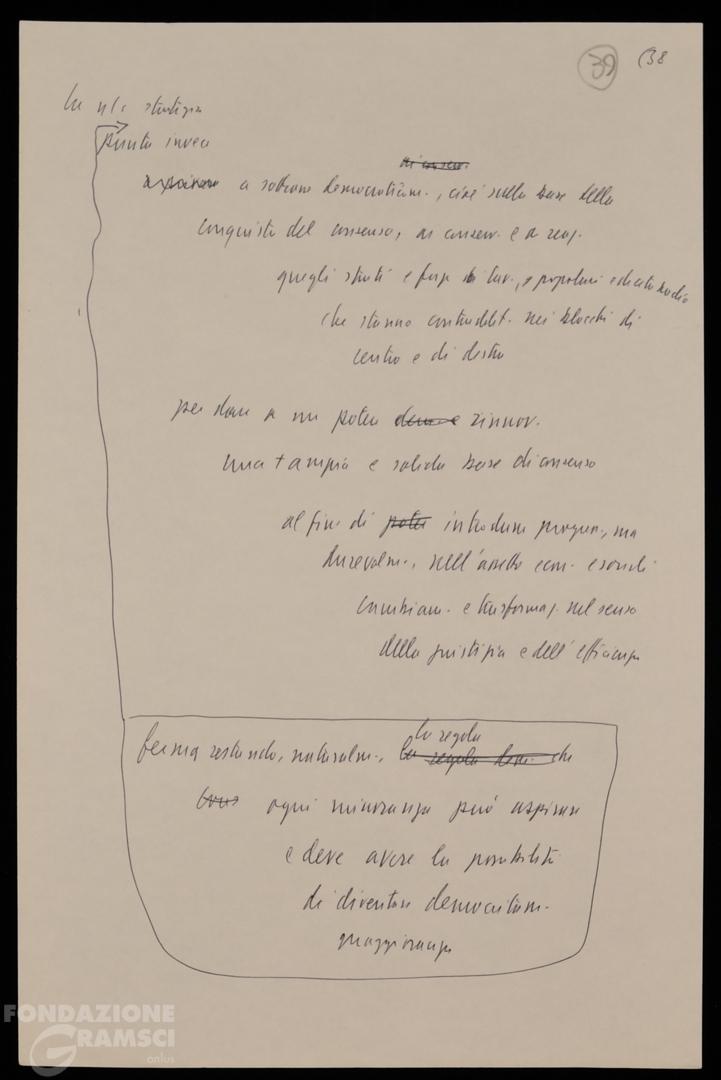 39 (38
La n/s strategia
punta invece
di conser.
a sottrarre democraticam., cioè sulla base della
conquista del consenso, ai conserv. e ai reaz.
quegli strati e forze di lav., e popolari e di ceto medio
che stanno contraddit. nei blocchi di
centro e di destra
per dare a un potere rinnov.
una + ampia e solida base di consenso
al fine di poter introdurre progress., ma
durevolm., nell'assetto econ. e sociale
cambiam. e trasformaz. nel senso
della giustizia e dell'efficienza
la regola
ferma restando, naturalm., la regola dem. che
ogni minoranza può aspirare
e deve avere la possibilità
di diventare democraticam.
maggioranza
FONDAZIONE
GRAMSCI
onlus